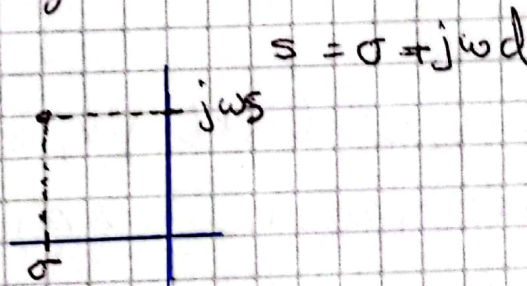 s = σ + jωd
jωs
σ